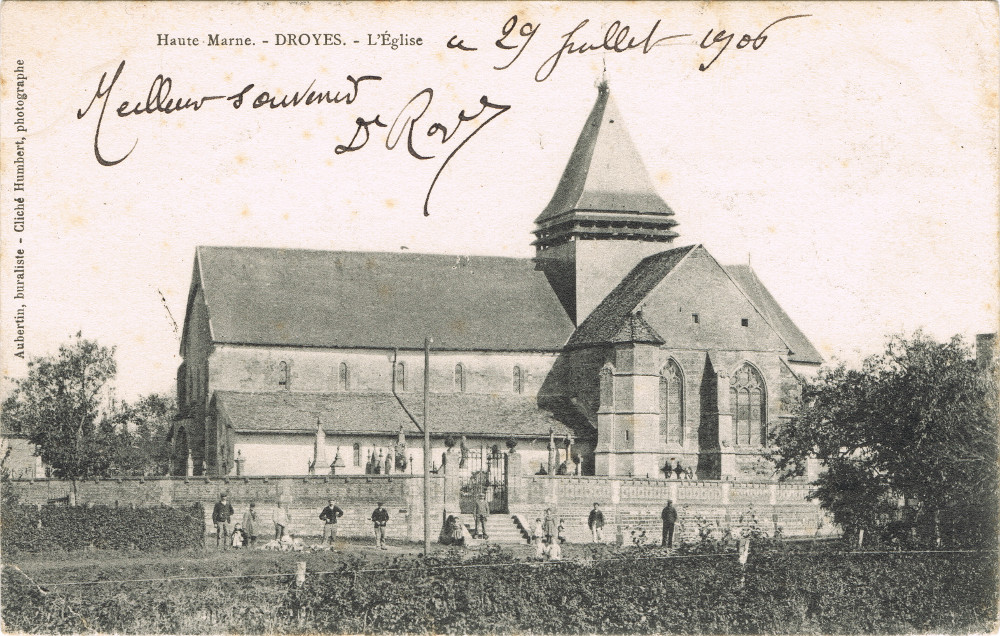 Haute-Marne. - DROYES. - L'Église
le 29 Juillet 1906
Meilleur souvenir
Dr
Aubertin, buraliste - Cliché Humbert, photographe